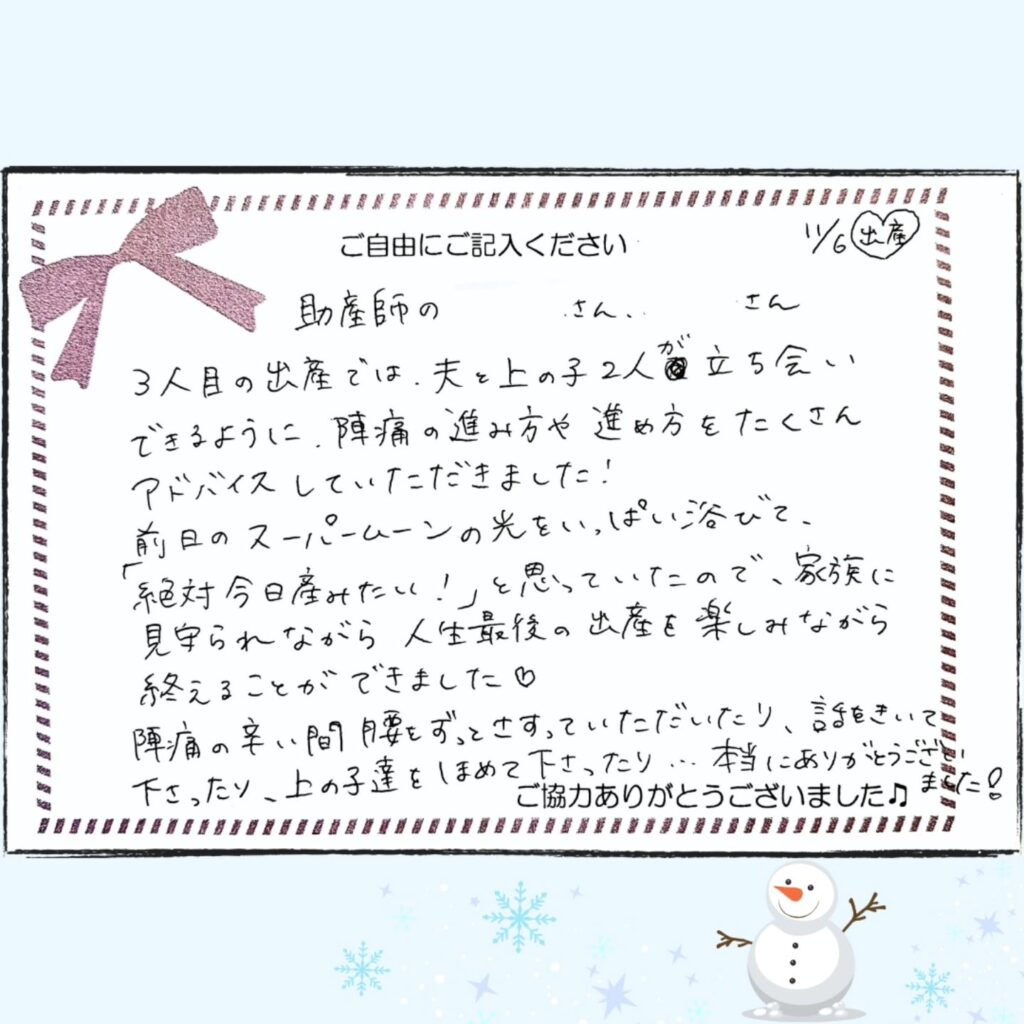 ご自由にご記入ください
11/6 出産
助産師の さん、 さん
3人目の出産では、夫と上の子2人が立ち会い
できるように、陣痛の進み方や進め方をたくさん
アドバイスしていただきました!
前日のスーパームーンの光をいっぱい浴びて、
「絶対今日産みたい!」と思っていたので、家族に
見守られながら 人生最後の出産を楽しみながら
終えることができました♡
陣痛の辛い間腰をずっとさすっていただいたり、話をきいて
下さったり、上の子達をほめて下さったり…本当にありがとうござい
ました!
ご協力ありがとうございました♫